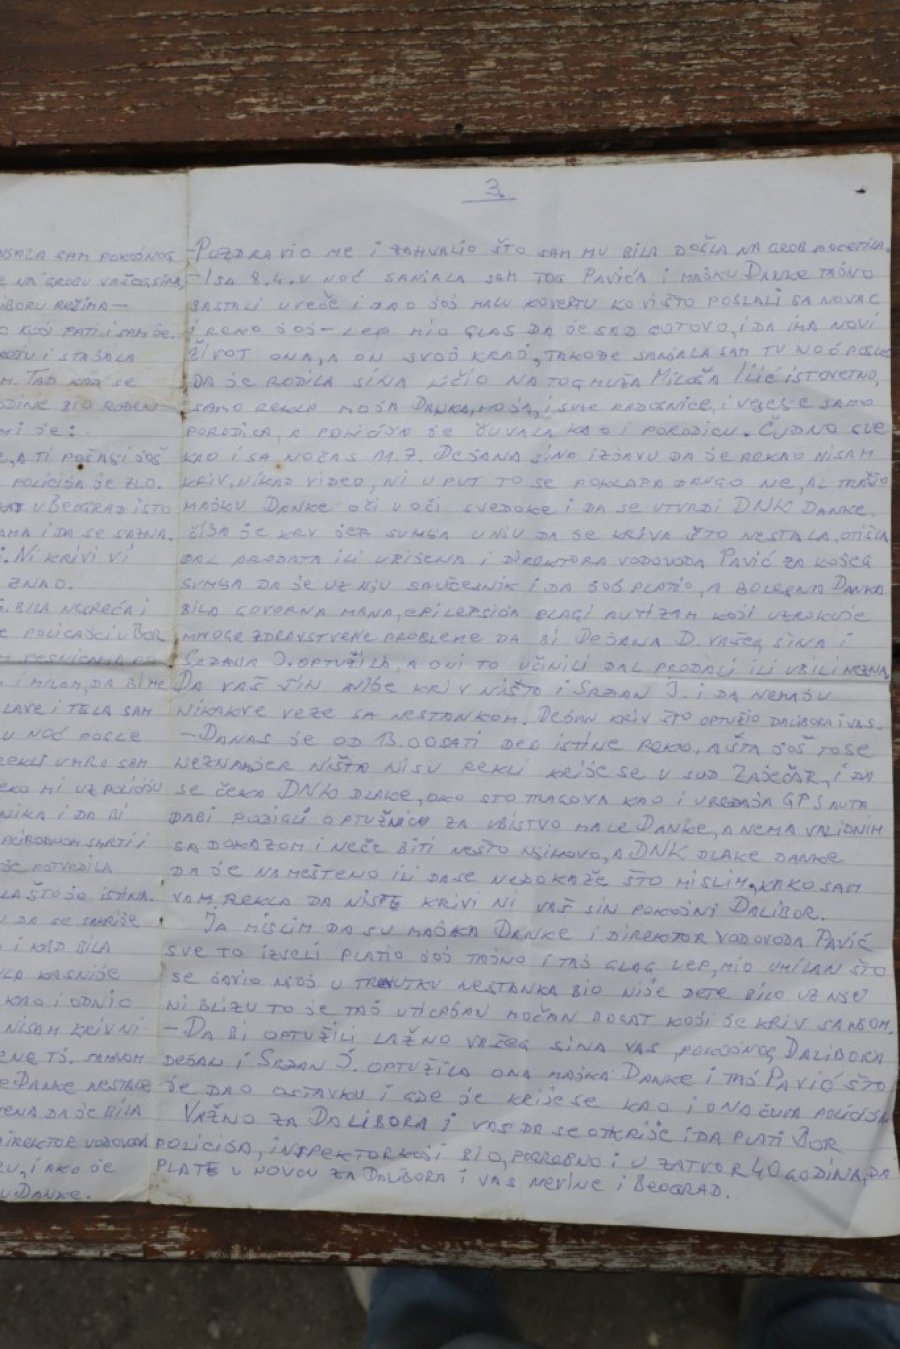 3.
-POZDRAVIO ME I ZAHVALIO ŠTO SAM MU BILA DOŠLA NA GROB
-I SA 8.4. U NOĆ SANJALA SAM TOG PAVIĆA I MAJKU DANKE TAJNO
SASTALI UVEČE I DAO JOJ MALU KOVERTU POSLALI SA NOVAC
I REKO JOJ - LEP MIO GLAS DA JE SAD GOTOVO, I DA IMA NOVI
ŽIVOT ONA, A ON SVOJ KRAJ, TAKOĐE SANJALA SAM TU NOĆ POSLE
DA JE RODILA SINA LIČIO NA TOG MUŽA MILOŠA ILIĆ ISTOVETNO,
SAMO REKLA MOJA DANKA, MOJA, I SUZE RADOSNICE, I SAMO
PORODICA, A POLICIJA JE ČUVALA KAO I PORODICU. ČUDNO SVE
KAO I SA NOĆAS 11.7. DEJANA SINA IZJAVU DA JE REKAO NISAM
KRIV, NIKAD VIDEO, NI U PUT TO SE POKLAPA DRUGO NE, AL TRAŽIO
MAJKU DANKE OČI U OČI SVEDOKE I DA SE UTVRDI DNK DANKE.
ČIJA JE KRV JER SUMNJA U NJU DA SE KRIVA ŠTO NESTALA. OTIŠLA
DAL PRODATA ILI UBIJENA I DIREKTORA VODOVODA PAVIĆ ZA KOJEG
SUMNJA DA JE UZ NJU SAUČESNIK I DA JOJ PLATIO, A BOLESNA DANKA
BILA GOVORNA MANA, EPILEPSIJA BLAGI AUTIZAM KOJI UZROKUJE
MNOGE ZDRAVSTVENE PROBLEME DA BI DEJANA D. VAŠEG SINA I
SRĐANA J. OPTUŽILA, A ONI TO UČINILI DAL PRODALI ILI UBILI NEZNA.
DA VAŠ SIN NIJE KRIV NIŠTO I SRĐAN J. I DA NEMAJU
NIKAKVE VEZE SA NESTANKOM. DEJAN KRIV ŠTO OPTUŽIO DALIBORA I VAS.
-DANAS JE OD 13.00 SATI DEO ISTINE REKO, A ŠTA JOŠ TO SE
NEZNA JER NIŠTA NISU REKLI KRIJE SE U SUD ZAJEČAR, I DA
SE ČEKA DNK DLAKE, OKO STO TRAGOVA KAO I UREĐAJA GPS AUTA
DA BI PODIGLI OPTUŽNICU ZA UBISTVO MALE DANKE, A NEMA VALIDNIH
SA DOKAZOM I NEĆE BITI NEŠTO NJIHOVO, A DNK DLAKE DANKE
DA JE NAMEŠTENO ILI DA SE NEDOKAŽE ŠTO MISLIM, KAKO SAM
VAM REKLA DA NISTE KRIVI NI VAŠ SIN POKOJNI DALIBOR.
JA MISLIM DA SU MAJKA DANKE I DIREKTOR VODOVODA PAVIĆ
SVE TO IZVELI PLATIO JOJ TAJNO I TAJ GLAS LEP, MIO UMILAN ŠTO
SE JAVIO NJOJ U TRENUTKU NESTANKA BIO NIJE DETE BILO UZ NJU
NI BLIZU TO JE TAJ UTICAJAN MOĆAN BOGAT KOJI JE KRIV SA NJOM.
-DA BI OPTUŽILI LAŽNO VAŠEG SINA VAS, POKOJNOG DALIBORA
DEJAN I SRĐAN J. OPTUŽILA ONA MAJKA DANKE I TAJ PAVIĆ ŠTO
JE DAO OSTAVKU I GDE JE KRIJE SE KAO I ONA ČUVA POLICIJA.
VAŽNO ZA DALIBORA I VAS DA SE OTKRIJE I DA PLATI BOR
POLICIJA, INSPEKTOR KOJI BIO, POTREBNO I U ZATVOR 40 GODINA, DA
PLATE U NOVCU ZA DALIBORA I VAS NEVINE I BEOGRAD.
SAM POKOJNOG
NA GROBU VAŠEG SINA,
I STAJALA
TAD KAD SE
BIO ROĐEN
A TI POČASI JOŠ
POLICIJA JE ZLO.
U BEOGRAD ISTO
I DA SE SAZNA.
NI KRIVI VI
ZNAO.
BILA NESREĆA I
POLICAJCI U BOR
PESNICAMA PO
DA BI ME
GLAVE I TELA SAM
U NOĆ POSLE
REKLI UMRO SAM
I DA BI
PRIRODNOM SMRTI I
JE POTVRDILA
ISTINA.
DA SE SAKRIJE
I KAD BILA
KASNIJE
KAO I ODNIO
NISAM KRIV NI
DANKE NESTALE
DA JE BILA
DIREKTOR VODOVODA
I AKO JE
DANKE.